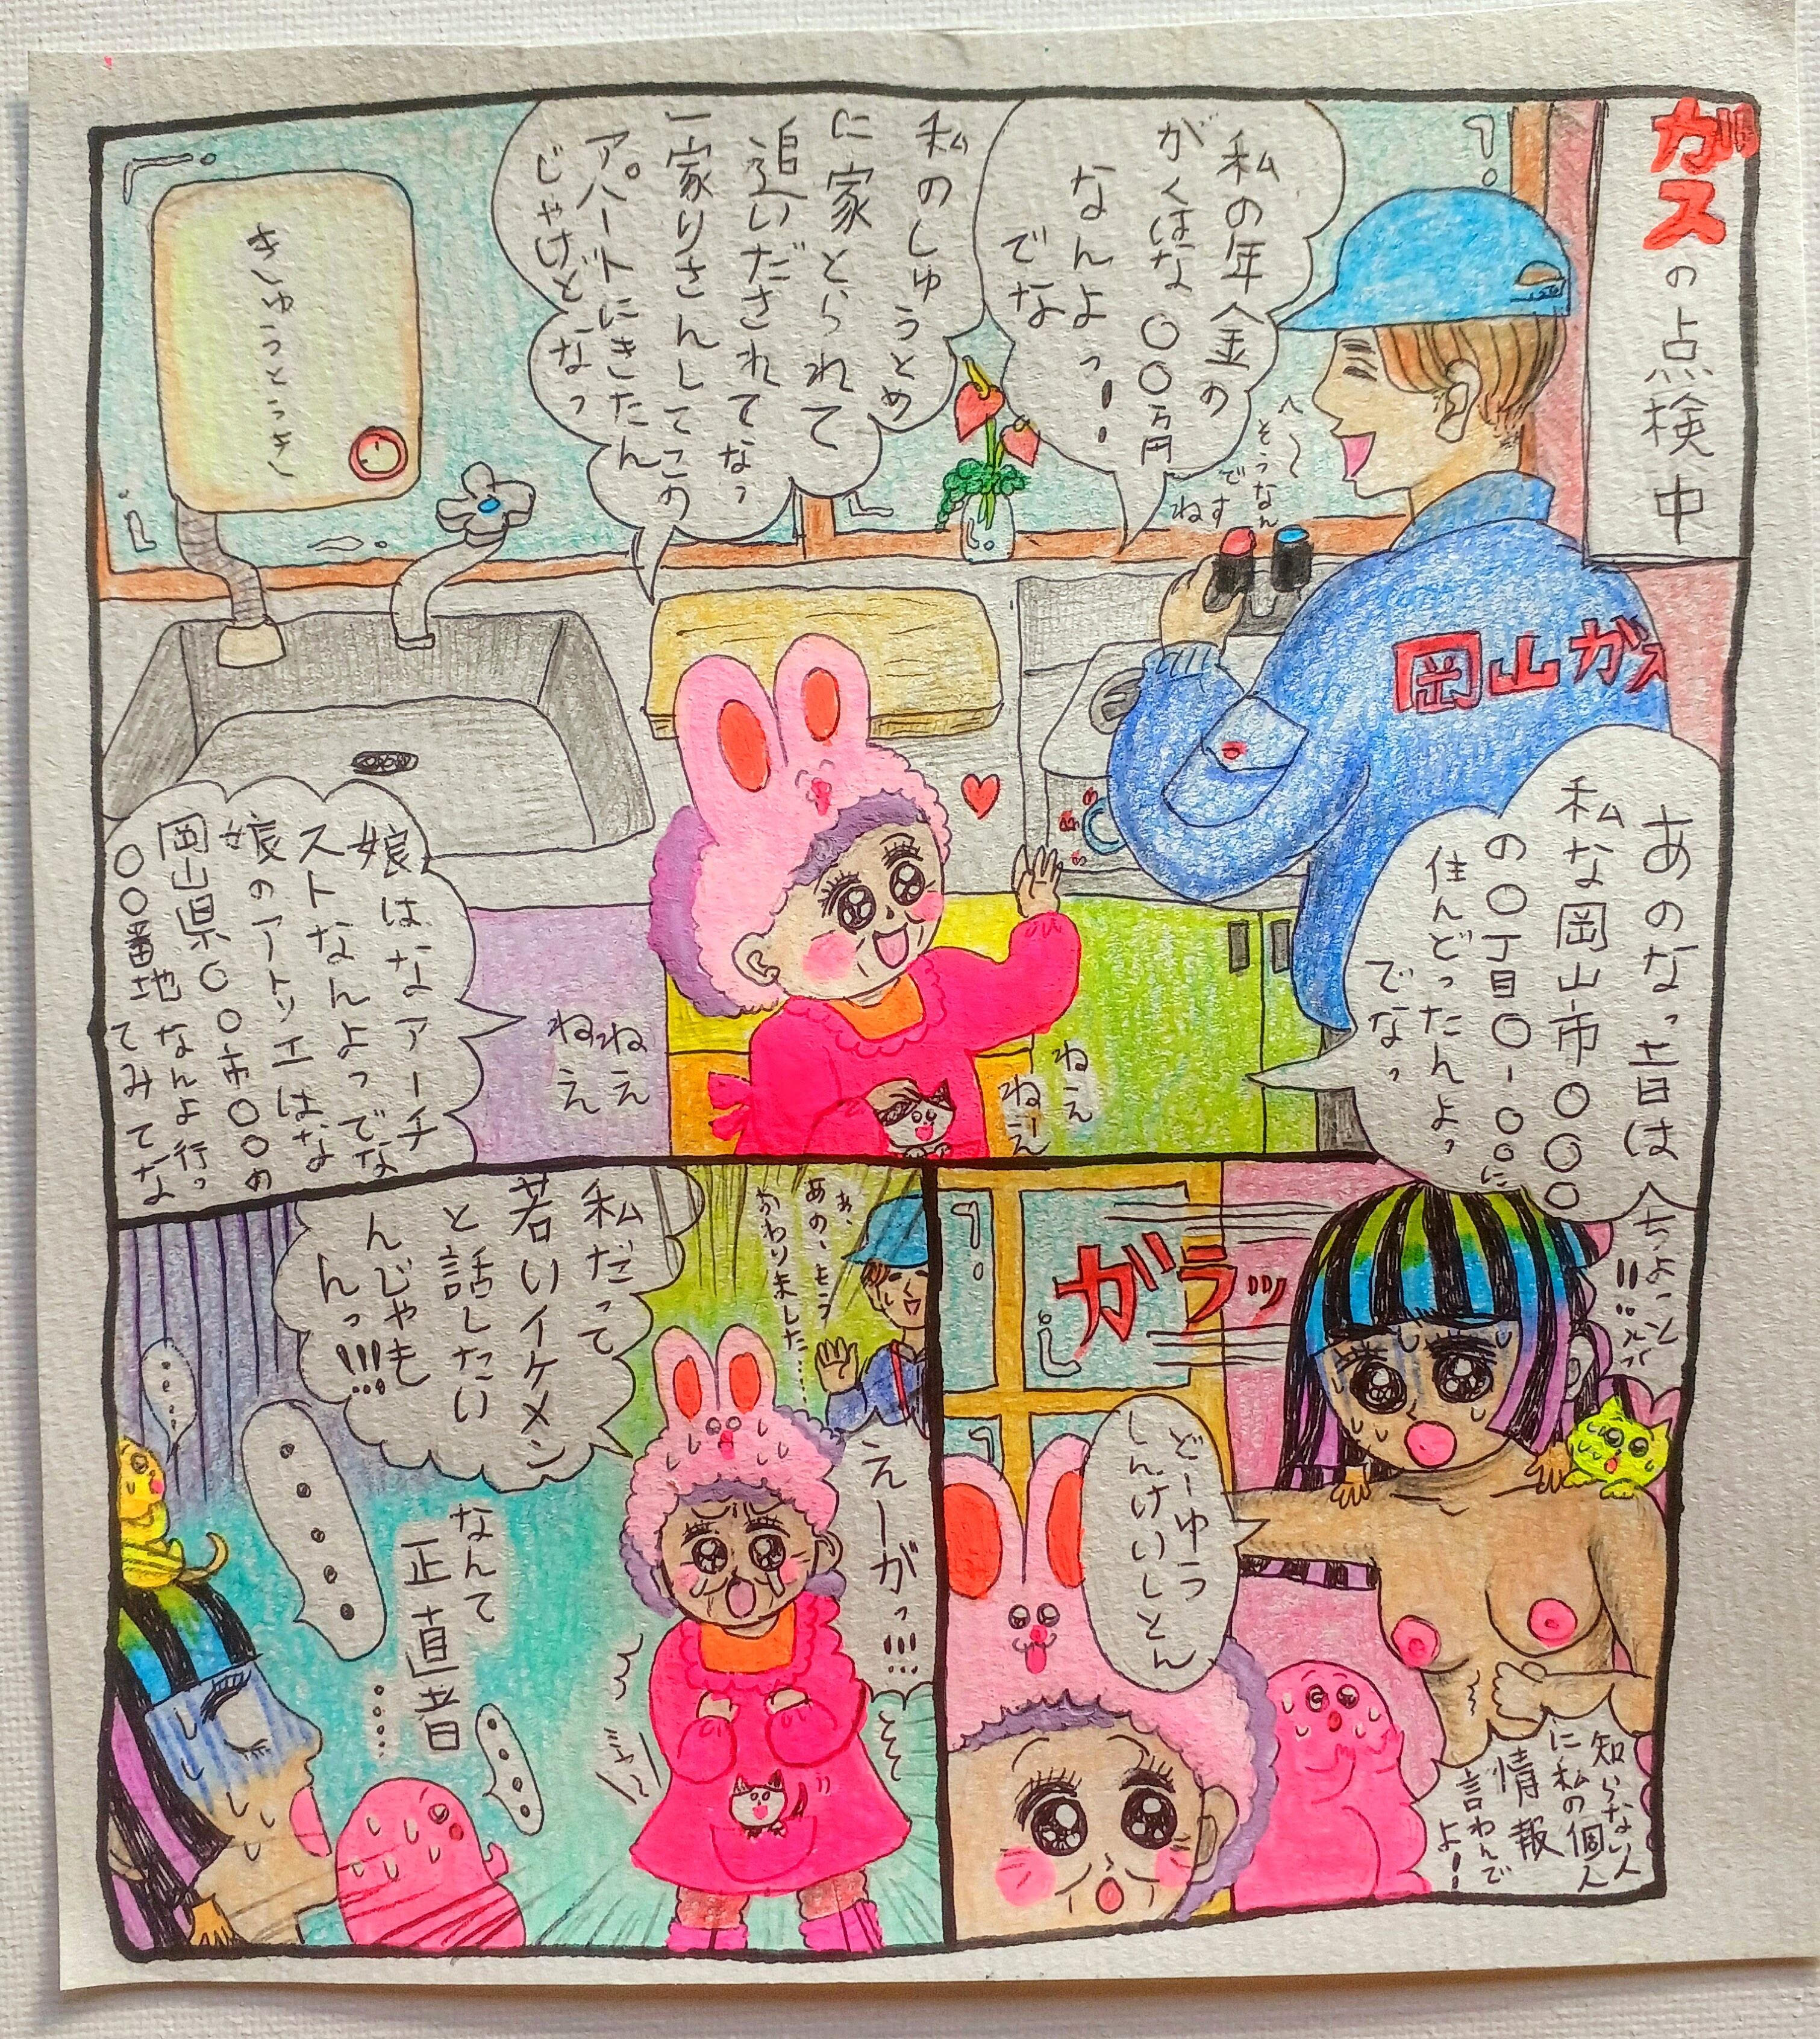 ガスの点検中
私の年金の
がくはな〇〇万円
なんよっ!
でな
へ〜
そうなん
ですね
私のしゅうとめ
に家とられて
追いだされてなっ
一家りさんしてこの
アパートにきたん
じゃけどなっ
きゅうとうき
岡山ガス
あのなっ昔は
私な岡山市〇〇〇
の〇丁目〇-〇〇に
住んどったんよっ
でなっ
ねえ
ねーえ
ねえ
ねえ
娘はなアーチ
ストなんよってな
娘のアトリエはな
岡山県〇〇市〇〇め
〇〇番地なんよ行っ
てみてな
ちょっと
!!
ガラッ
どーゆう
しんけいしとん
知らない人
に私の個人
情報
言わんで
よー!
あ、
あの、もう
おわりました…
えーがっ!!!
私だって
若いイケメン
と話したい
んじゃもん
っ!!!
なんて
正直者
……